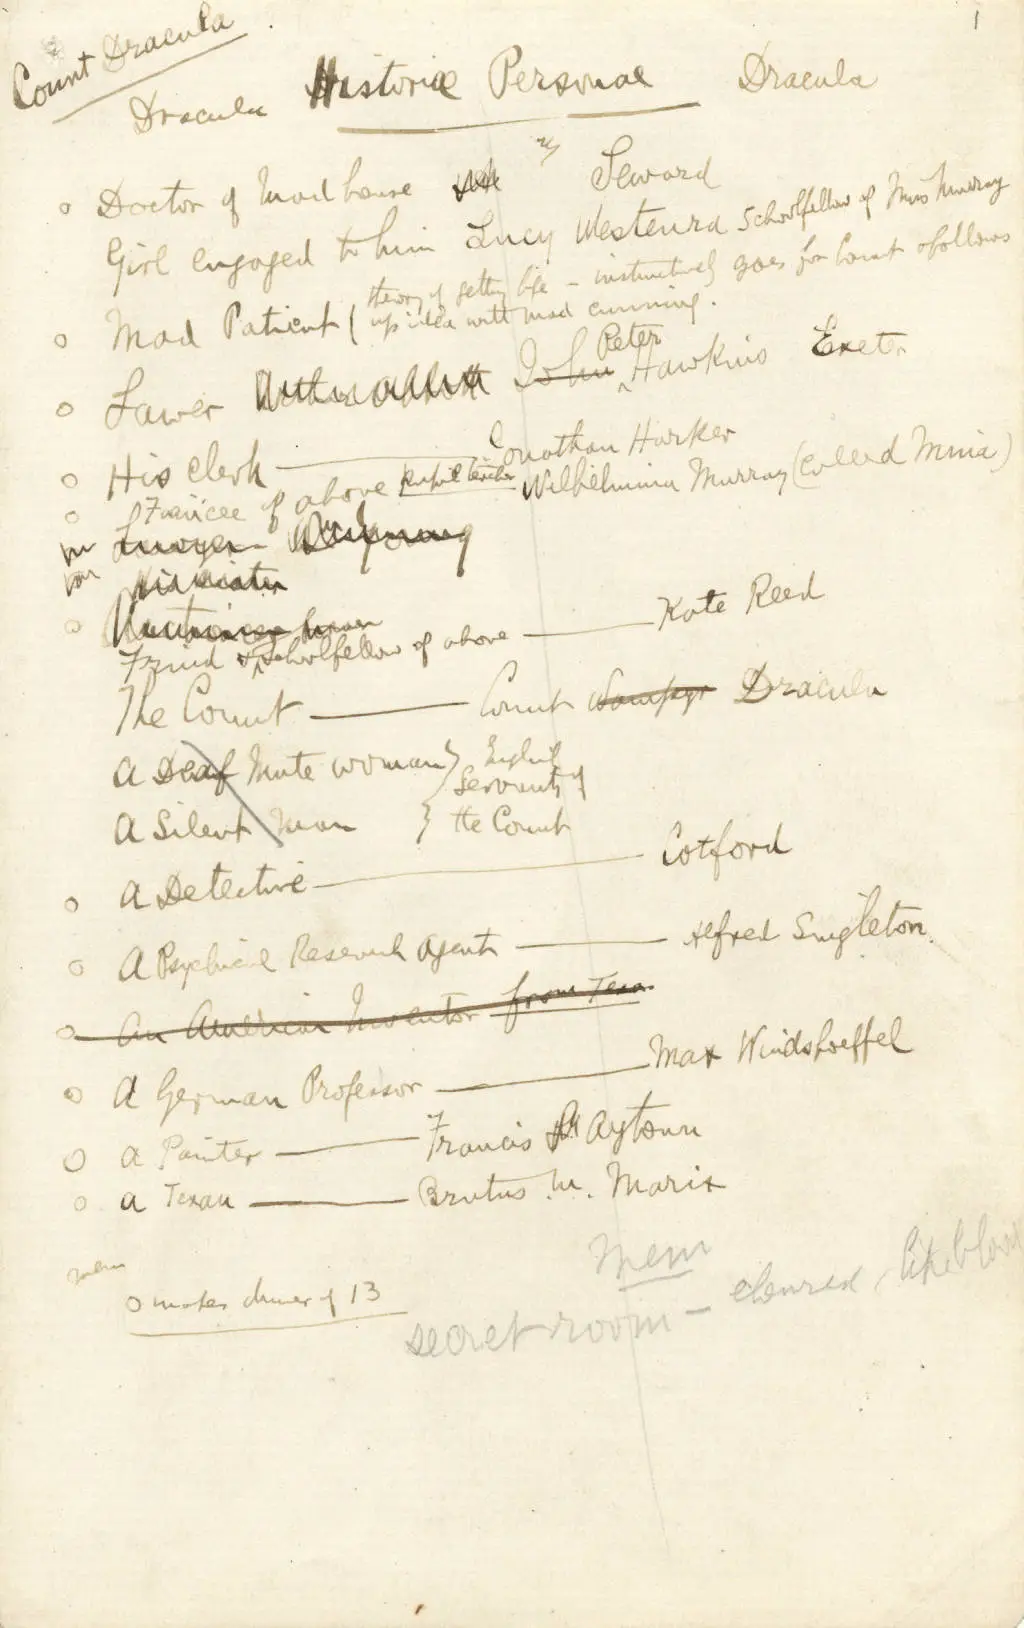 1
Count Dracula
Dracula Historiae Personae Dracula
Doctor of Mad house Seward
Girl engaged to him Lucy Westenra Schoolfellow of Miss Murray
Mad Patient (theory of getting life - instinctively goes for Count & follows
up idea with mad cunning.
Lawer John Peter Hawkins Exeter
His Clerk Jonathan Harker
Fiancée of above pupil teacher Wilhelmina Murray (called Mina)
Lawyer
Friend & Schoolfellow of above Kate Reed
The Count Count Wampyr Dracula
A Deaf Mute woman } English
Servants of
A Silent Man } the Count
A Detective Cotford
A Psychical Research Agent Alfred Singleton.
An American Inventor from Texas
A German Professor Max Windshoeffel
A Painter Francis Aytown
A Texan Brutus M. Marix
Mem
mem
makes dinner of 13
secret room - coloured like blood